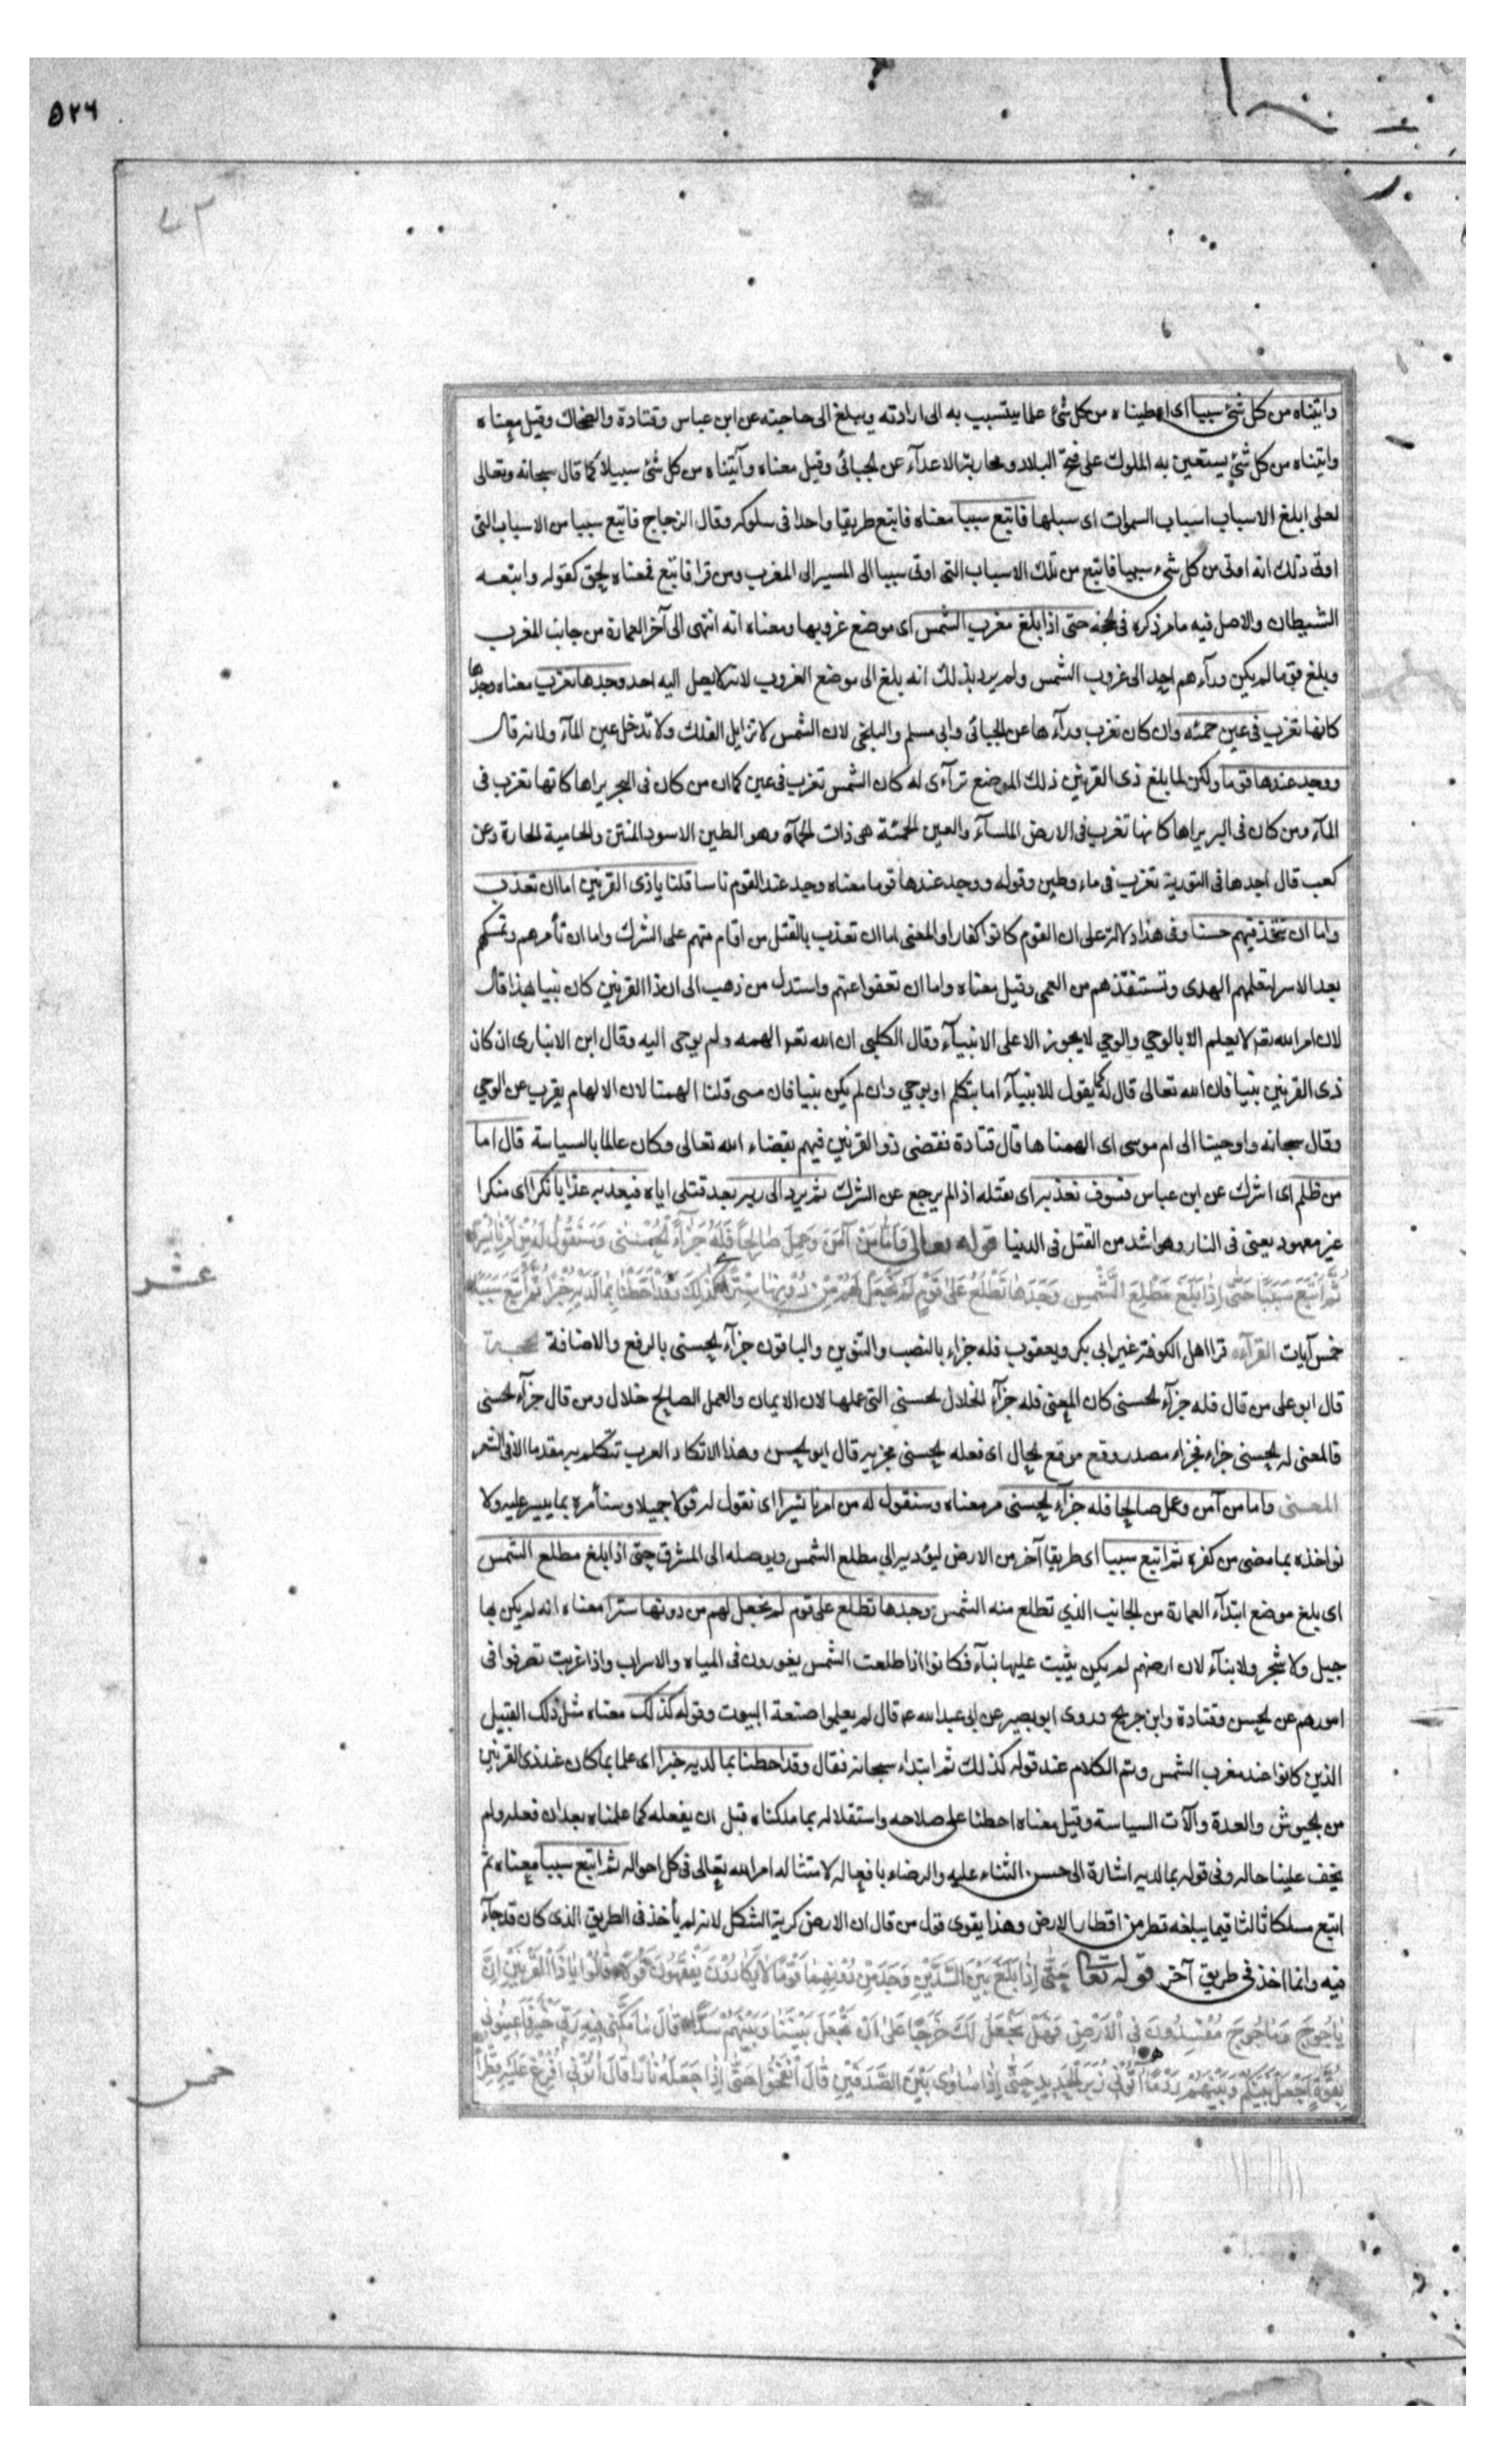 ۵۲۶
وآتيناه من كل شئ سببا اى اعطيناه من كل شئ علما يتسبب به الى ارادته ويبلغ الى حاجته عن ابن عباس وقتادة والضحاك وقيل معناه
وآتيناه من كل شئ يستعين به الملوك على فتح البلاد ومحاربة الاعدآء عن الجبائى وقيل معناه وآتيناه من كل شئ سبيلا كما قال سبحانه وتعالى
لعلى ابلغ الاسباب اسباب السموات اى سبلها فاتبع سببا معناه فاتبع طريقا واحدا فى سلوكه وقال الزجاج فاتبع سببا من الاسباب التى
اوتى ذلك انه اوتى من كل شىء سببا فاتبع من تلك الاسباب التى اوتى سببا الى المسير الى المغرب ومن قرا فاتبع فمعناه لحق كقوله واتبعه
الشيطان والاصل فيه ما مر ذكره فى الحجة حتى اذا بلغ مغرب الشمس اى موضع غروبها ومعناه انه انتهى الى آخر العمارة من جانب المغرب
وبلغ قوما لم يكن ورآءهم احد الى غروب الشمس ولم يرد بذلك انه بلغ الى موضع الغروب لانه لا يصل اليه احد وجدها تغرب معناه وجدها
كانها تغرب فى عين حمئه وان كان تغرب ورآءها عن الجبائى وابى مسلم والبلخى لان الشمس لا تزايل الفلك ولا تدخل عين المآء ولانه قال
ووجد عندها قوما ولكن لما بلغ ذى القرنين ذلك الموضع ترآءى له كان الشمس تغرب فى عين كما ان من كان فى البحر يراها كانها تغرب فى
المآء ومن كان فى البر يراها كانها تغرب فى الارض الملسآء والعين الحمئة هى ذات الحمأة وهو الطين الاسود المنتن والحامية الحارة وعن
كعب قال اجدها فى التورية تغرب فى ماء وطين وقوله ووجد عندها قوما معناه وجد عند القوم ناسا قلنا يا ذى القرنين اما ان تعذب
واما ان تتخذ فيهم حسنا وفى هذا دلالة على ان القوم كانوا كفارا والمعنى اما ان تعذب بالقتل من اقام منهم على الشرك واما ان تأسرهم وتمسكهم
بعد الاسر لتعلمهم الهدى وتستنقذهم من العمى وقيل معناه واما ان تعفوا عنهم واستدل من ذهب الى ان ذا القرنين كان نبيا بهذا قال
لان امر الله تعه لا يعلم الا بالوحي والوحي لا يجوز الا على الانبيآء وقال الكلبى ان الله تعه الهمه ولم يوحى اليه وقال ابن الانبارى ان كان
ذى القرنين نبيا فان الله تعالى قال له كما يقول للانبيآء اما بتكلم او بوحي وان لم يكن نبيا فان معنى قلنا الهمنا لان الالهام يقرب من الوحي
وقال سبحانه واوحينا الى ام موسى اى الهمناها قال قتادة فقضى ذو القرنين فيهم بقضاء الله تعالى وكان عالما بالسياسة قال اما
من ظلم اى اشرك عن ابن عباس فسوف نعذبه اى نقتله اذا لم يرجع عن الشرك ثم يرد الى ربه بعد قتلى اياه فيعذبه عذابا نكرا اى منكرا
غير معهود يعنى فى النار وهو اشد من القتل فى الدنيا قوله تعالى وَاَمَّا مَنْ آمَنَ وَعَمِلَ صَالِحًا فَلَهُ جَزَآءً الْحُسْنٰى وَسَنَقُولُ لَهُ مِنْ اَمْرِنَا يُسْرًا
ثُمَّ اَتْبَعَ سَبَبًا حَتّٰى اِذَا بَلَغَ مَطْلِعَ الشَّمْسِ وَجَدَهَا تَطْلُعُ عَلٰى قَوْمٍ لَمْ نَجْعَلْ لَهُمْ مِنْ دُونِهَا سِتْرًا كَذٰلِكَ وَقَدْ اَحَطْنَا بِمَا لَدَيْهِ خُبْرًا ثُمَّ اَتْبَعَ سَبَبًا
عشر
خمس آيات القرآءه قرا اهل الكوفة غير ابى بكر ويعقوب فله جزاء بالنصب والتنوين والباقون جزآء الحسنى بالرفع والاضافة الحجة
قال ابو على من قال فله جزآء الحسنى كان المعنى فله جزآء الخلال الحسنى التى عملها لان الايمان والعمل الصالح خلال ومن قال جزآء الحسنى
فالمعنى له الحسنى جزاء فجزاء مصدر وقع موقع الحال اى فعله الحسنى مجزيه قال ابو الحسن وهذا لا تكاد العرب تتكلم به مقدما الا فى الشعر
المعنى واما من آمن وعمل صالحا فله جزآء الحسنى مر معناه وسنقول له من امرنا يسرا اى نقول له قولا جميلا وسنأمره بما ييسر عليه ولا
نواخذه بما مضى من كفره ثم اتبع سببا اى طريقا آخر من الارض ليؤديه الى مطلع الشمس ويوصله الى المشرق حتى اذا بلغ مطلع الشمس
اى بلغ موضع ابتدآء العمارة من الجانب الذي تطلع منه الشمس وجدها تطلع على قوم لم نجعل لهم من دونها سترا معناه انه لم يكن بها
جبل ولا شجر ولا بنآء لان ارضهم لم يكن يثبت عليها بنآء فكانوا اذا طلعت الشمس يغورون فى المياه والاسراب واذا غربت تصرفوا فى
امورهم عن الحسن وقتادة وابن جريج وروى ابو بصير عن ابى عبدالله عه قال لم يعلموا صنعة البيوت وقوله كذلك معناه مثل ذلك القبيل
الذين كانوا عند مغرب الشمس وتم الكلام عند قوله كذلك ثم ابتداء سبحانه فقال وقد احطنا بما لديه خبرا اى علما بما كان عند ذى القرنين
من الجيوش والعدة وآلات السياسة وقيل معناه احطنا على صلاحه واستقلاله بما ملكناه قبل ان يفعله كما علمناه بعد ان فعله ولم
يخف علينا حاله وفى قوله بما لديه اشارة الى حسن الثناء عليه والرضاء بافعاله لامتثاله امر الله تعالى فى كل احواله ثم اتبع سببا معناه ثم
اتبع مسلكا ثالثا فيما يبلغه قطر من اقطار الارض وهذا يقوى قول من قال ان الارض كرية الشكل لانه لم يأخذ فى الطريق الذى كان قد جآء
فيه وانما اخذ فى طريق آخر قوله تعالى حَتّٰى اِذَا بَلَغَ بَيْنَ السَّدَّيْنِ وَجَدَ مِنْ دُونِهِمَا قَوْمًا لَا يَكَادُونَ يَفْقَهُونَ قَوْلًا قَالُوا يَا ذَا الْقَرْنَيْنِ اِنَّ
يَاْجُوجَ وَمَاْجُوجَ مُفْسِدُونَ فِى الْاَرْضِ فَهَلْ نَجْعَلُ لَكَ خَرْجًا عَلٰى اَنْ تَجْعَلَ بَيْنَنَا وَبَيْنَهُمْ سَدًّا قَالَ مَا مَكَّنّى فِيهِ رَبّى خَيْرٌ فَاَعِينُونى
بِقُوَّةٍ اَجْعَلْ بَيْنَكُمْ وَبَيْنَهُمْ رَدْمًا آتُونى زُبَرَ الْحَدِيدِ حَتّٰى اِذَا سَاوٰى بَيْنَ الصَّدَفَيْنِ قَالَ انْفُخُوا حَتّٰى اِذَا جَعَلَهُ نَارًا قَالَ آتُونى اُفْرِغْ عَلَيْهِ قِطْرًا
خمس